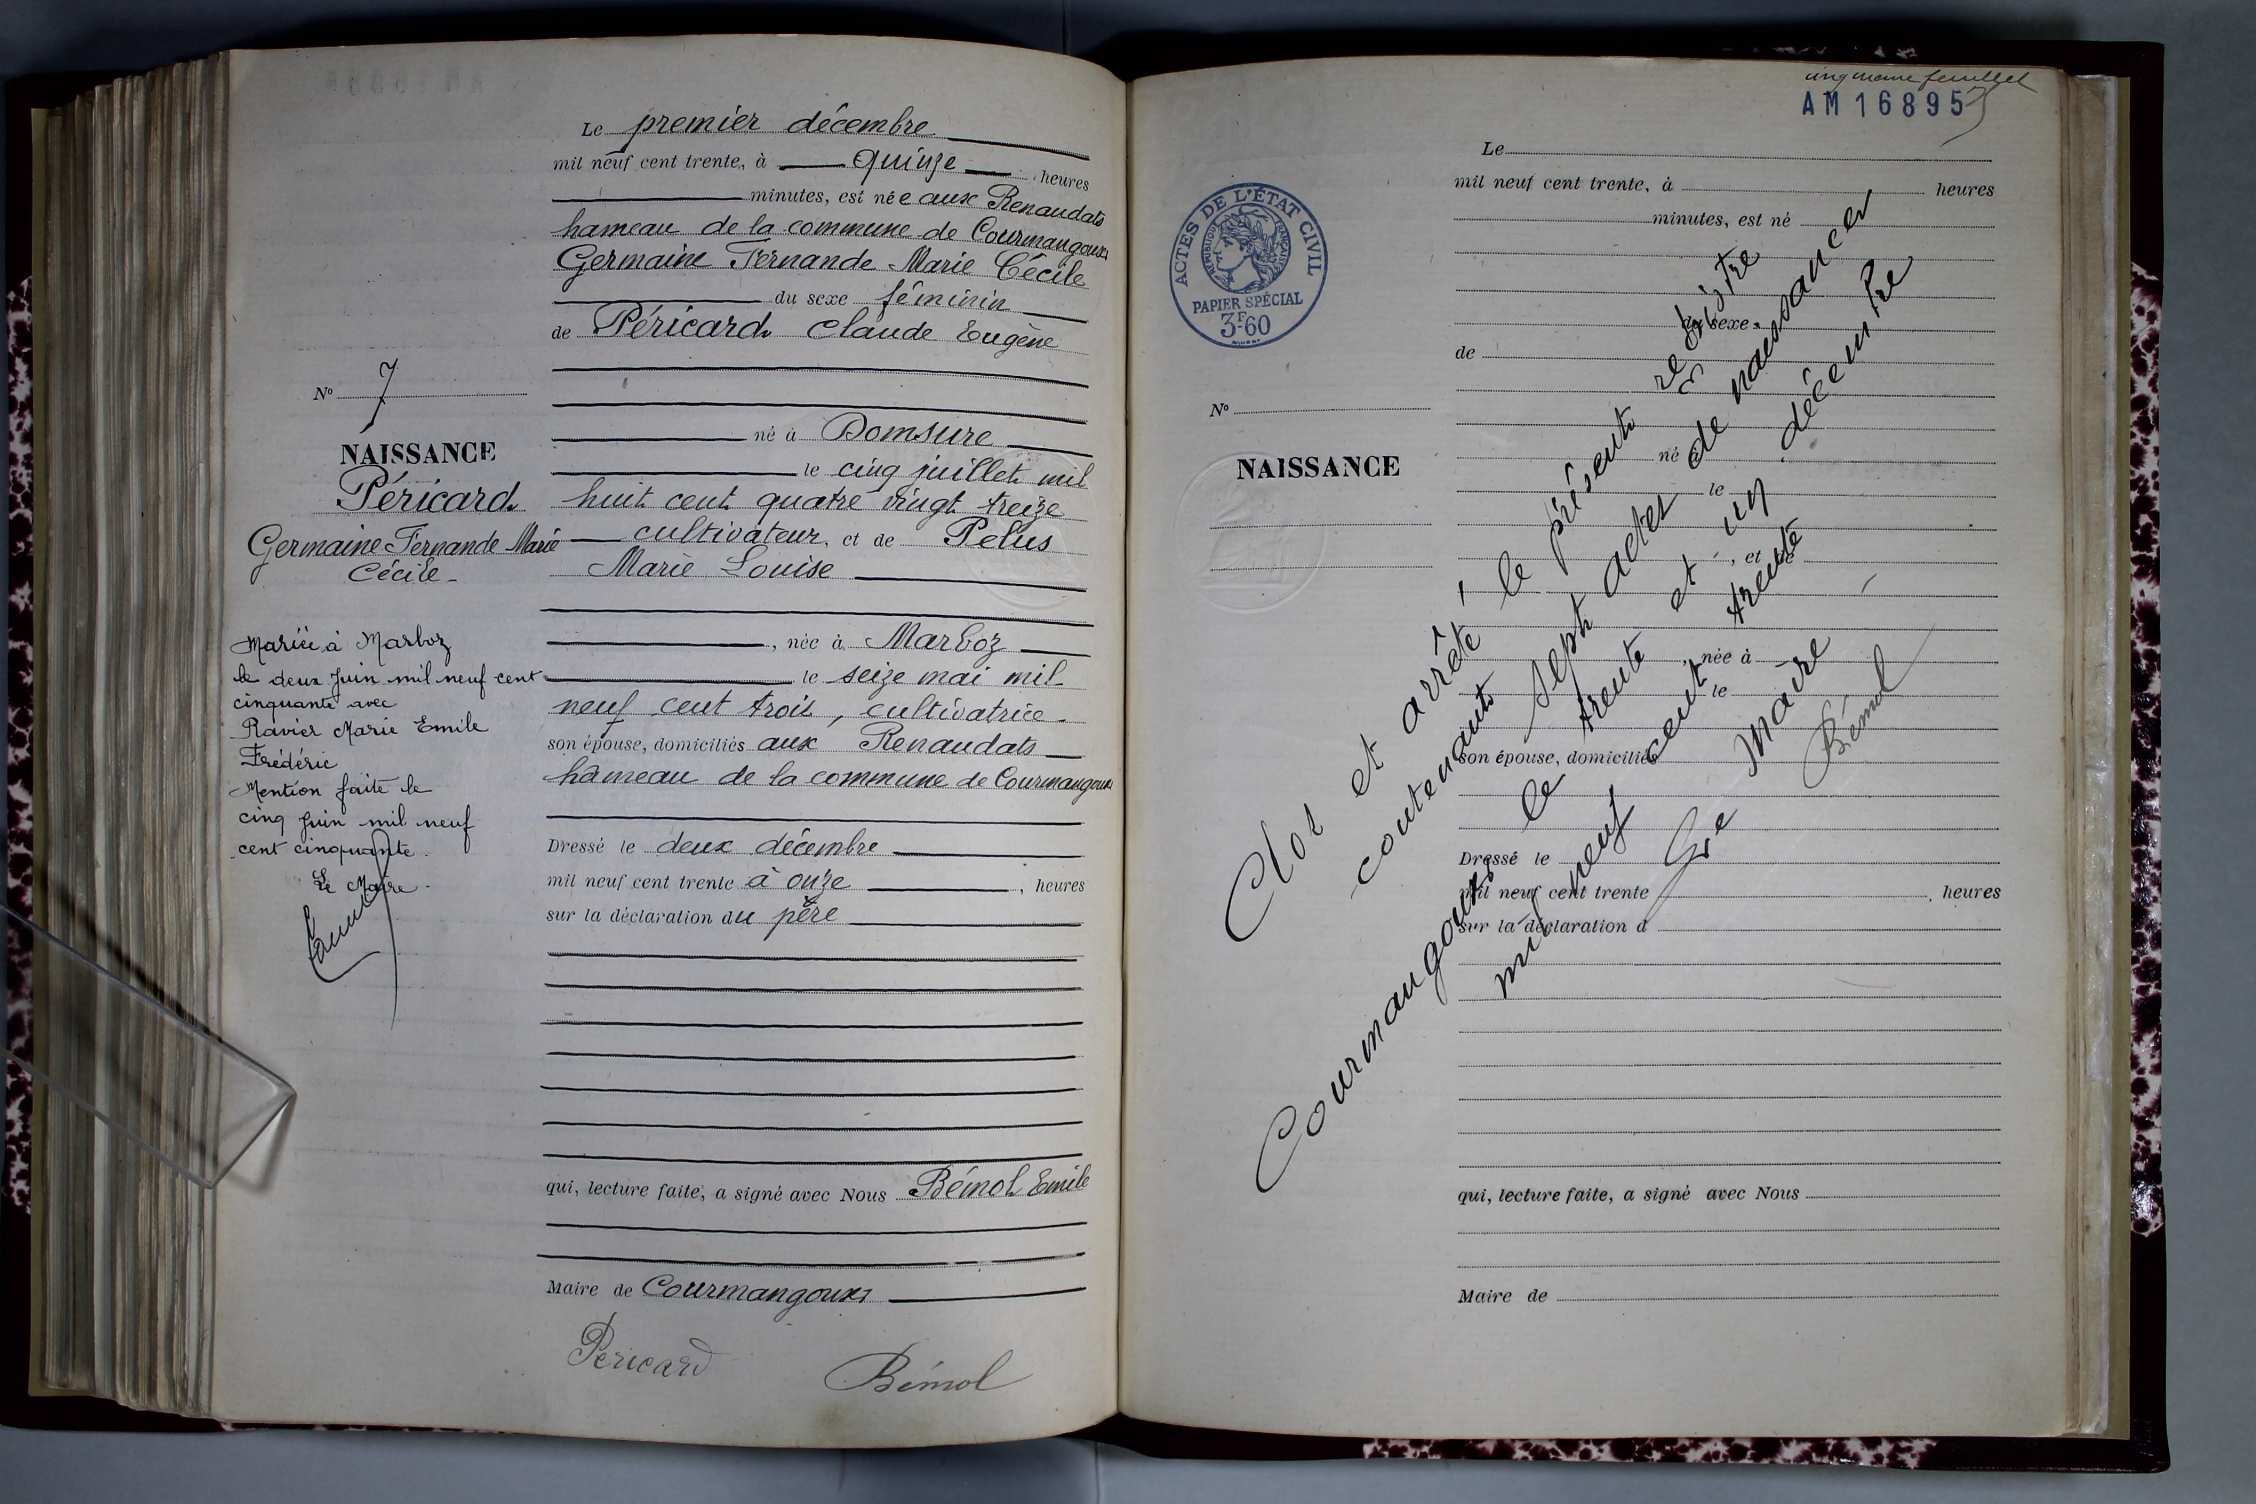 Le premier décembre
mil neuf cent trente, à quinze heures
minutes, est née aux Renaudats
hameau de la commune de Courmangoux
Germaine Fernande Marie Cécile
du sexe féminin
de Péricard Claude Eugène
né à Domsure
le cinq juillet mil
huit cent quatre vingt treize
cultivateur, et de Pelus
Marie Louise
, née à Marboz
le seize mai mil
neuf cent trois, cultivatrice
son épouse, domiciliés aux Renaudats
hameau de la commune de Courmangoux
Dressé le deux décembre
mil neuf cent trente à onze , heures
sur la déclaration du père
qui, lecture faite, a signé avec Nous Bémol Emile
Maire de Courmangoux
Péricard
Bémol
No 7
NAISSANCE
Péricard
Germaine Fernande Marie
Cécile
Mariée à Marboz
le deux Juin mil neuf cent
cinquante avec
Ravier Marie Emile
Frédéric
Mention faite le
cinq Juin mil neuf
cent cinquante.
Le Maire.
feuillet
AM 16895
ACTES DE L'ÉTAT CIVIL
RÉPUBLIQUE FRANÇAISE
PAPIER SPÉCIAL
3F60
No
NAISSANCE
Le
mil neuf cent trente, à heures
minutes, est né
du sexe
de
né à
le
, et de
, née à
le
son épouse, domiciliés
Dressé le
mil neuf cent trente , heures
sur la déclaration d
qui, lecture faite, a signé avec Nous
Maire de
Clos et arrêté le présent registre
contenant sept actes de naissances
Courmangoux le trente et un décembre
mil neuf cent trente
Maire
Bémol